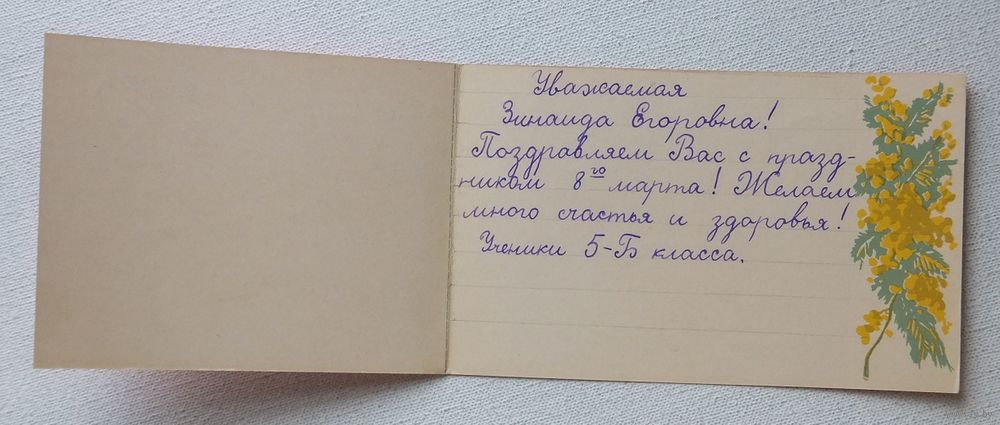 Уважаемая
Зинаида Егоровна!
Поздравляем Вас с празд-
ником 8го марта! Желаем
много счастья и здоровья!
Ученики 5-Б класса.